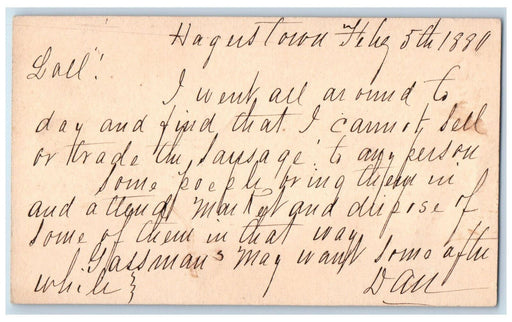 Hagerstown Feby 5th 1880
I went all around to
day and find that I cannot sell
or trade the sausage to any person
Some poeple bring them in
and attend Market and dispose of
some of them in that way
Gassmans may want some after
while Dan